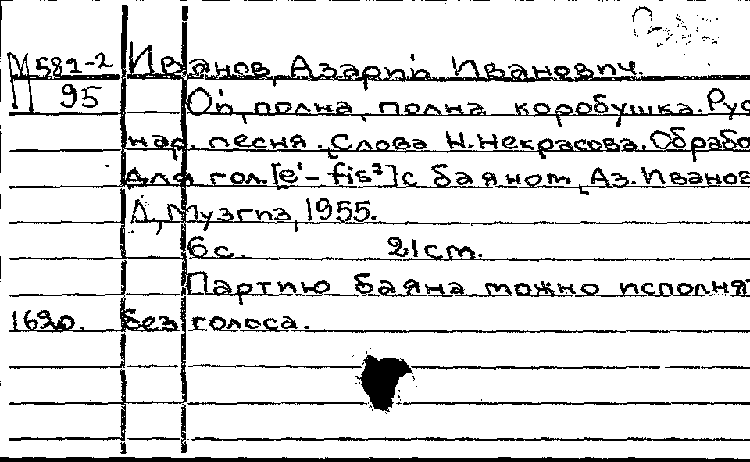 М581-2 Иванов, Азарий Иванович.
П 95 Ой, полна, полна коробушка. Рус
нар. песня. Слова Н. Некрасова. Обрабо
для гол. [e¹ - fis²] с баяном Аз. Иванов
Л, Музгиз, 1955.
6 с. 21 см.
Партию баяна можно исполня
1620. без голоса.